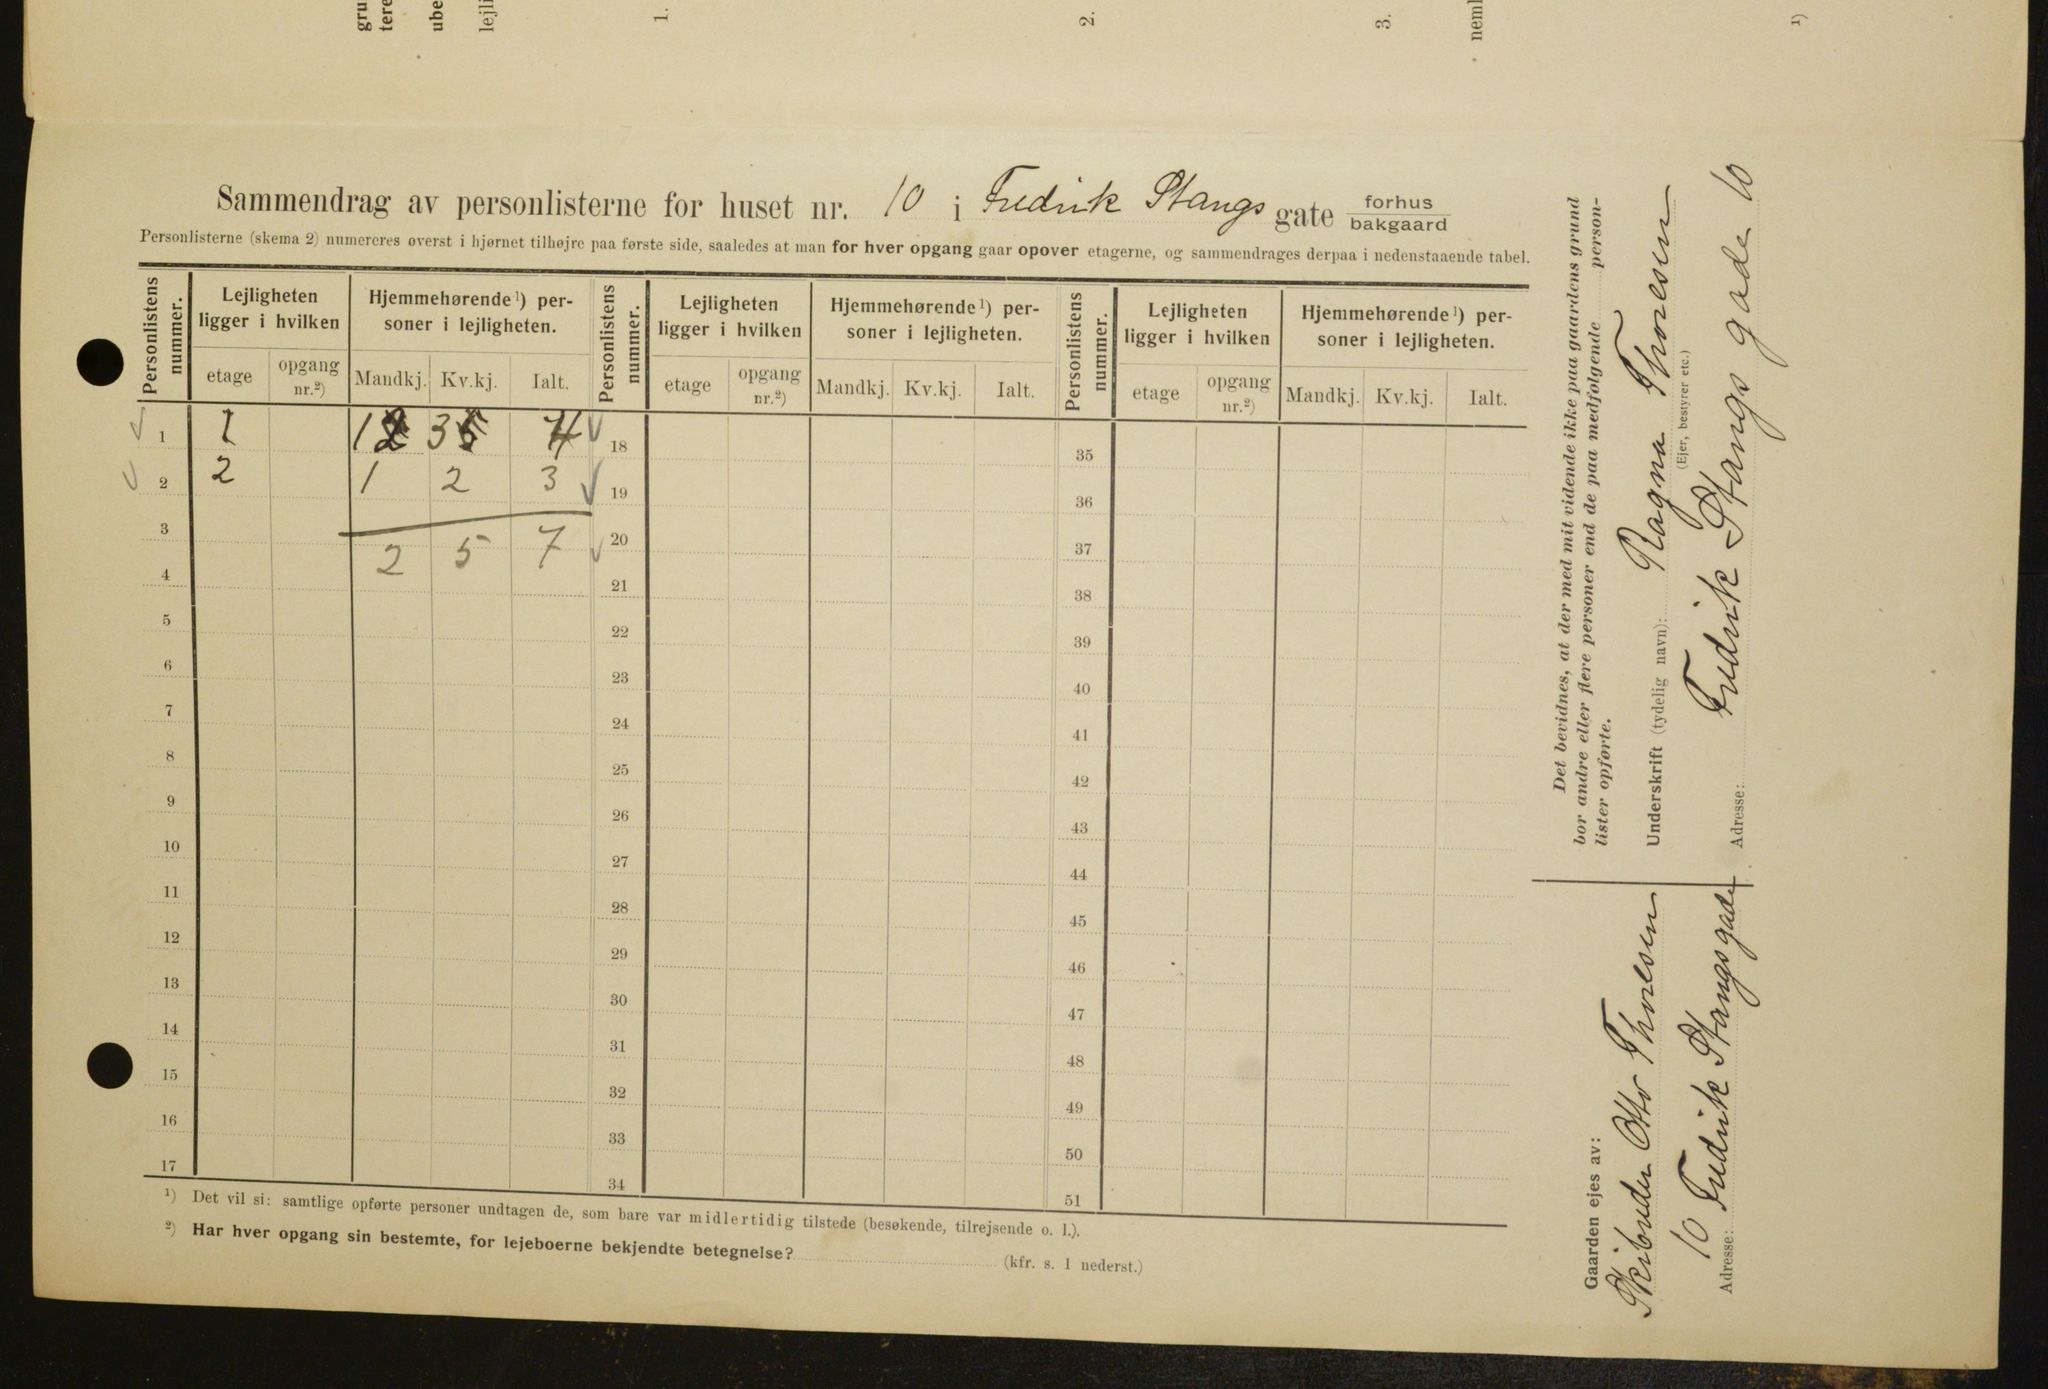 gru
tere
ube
lejli
1.
2.
3.
neml
1)
Sammendrag av personlisterne for huset nr. 10 i Fredrik Stangs gate forhus
bakgaard
Personlisterne (skema 2) numereres øverst i hjørnet tilhøjre paa første side, saaledes at man for hver opgang gaar opover etagerne, og sammendrages derpaa i nedenstaaende tabel.
Personlistens nummer. Lejligheten ligger i hvilken Hjemmehørende 1) personer i lejligheten. Personlistens nummer. Lejligheten ligger i hvilken Hjemmehørende 1) personer i lejligheten. Personlistens nummer. Lejligheten ligger i hvilken Hjemmehørende 1) personer i lejligheten.
etage opgang nr.2) Mandkj. Kv.kj. Ialt. etage opgang nr.2) Mandkj. Kv.kj. Ialt. etage opgang nr.2) Mandkj. Kv.kj. Ialt.
1 1 1 3 4 18 35
2 2 1 2 3 19 36
3 20 37
2 5 7
4 21 38
5 22 39
6 23 40
7 24 41
8 25 42
9 26 43
10 27 44
11 28 45
12 29 46
13 30 47
14 31 48
15 32 49
16 33 50
17 34 51
1) Det vil si: samtlige opførte personer undtagen de, som bare var midlertidig tilstede (besøkende, tilrejsende o. l.).
2) Har hver opgang sin bestemte, for lejeboerne bekjendte betegnelse? (kfr. s. 1 nederst.)
Det bevidnes, at der med mit vidende ikke paa gaardens grund
bor andre eller flere personer end de paa medfølgende person-
lister opførte.
Underskrift (tydelig navn): Ragna Thoresen
(Ejer, bestyrer etc.)
Adresse: Fredrik Stangs gade 10
Gaarden ejes av:
Skibsreder Otto Thoresen
Adresse: 10 Fredrik Stangsgade